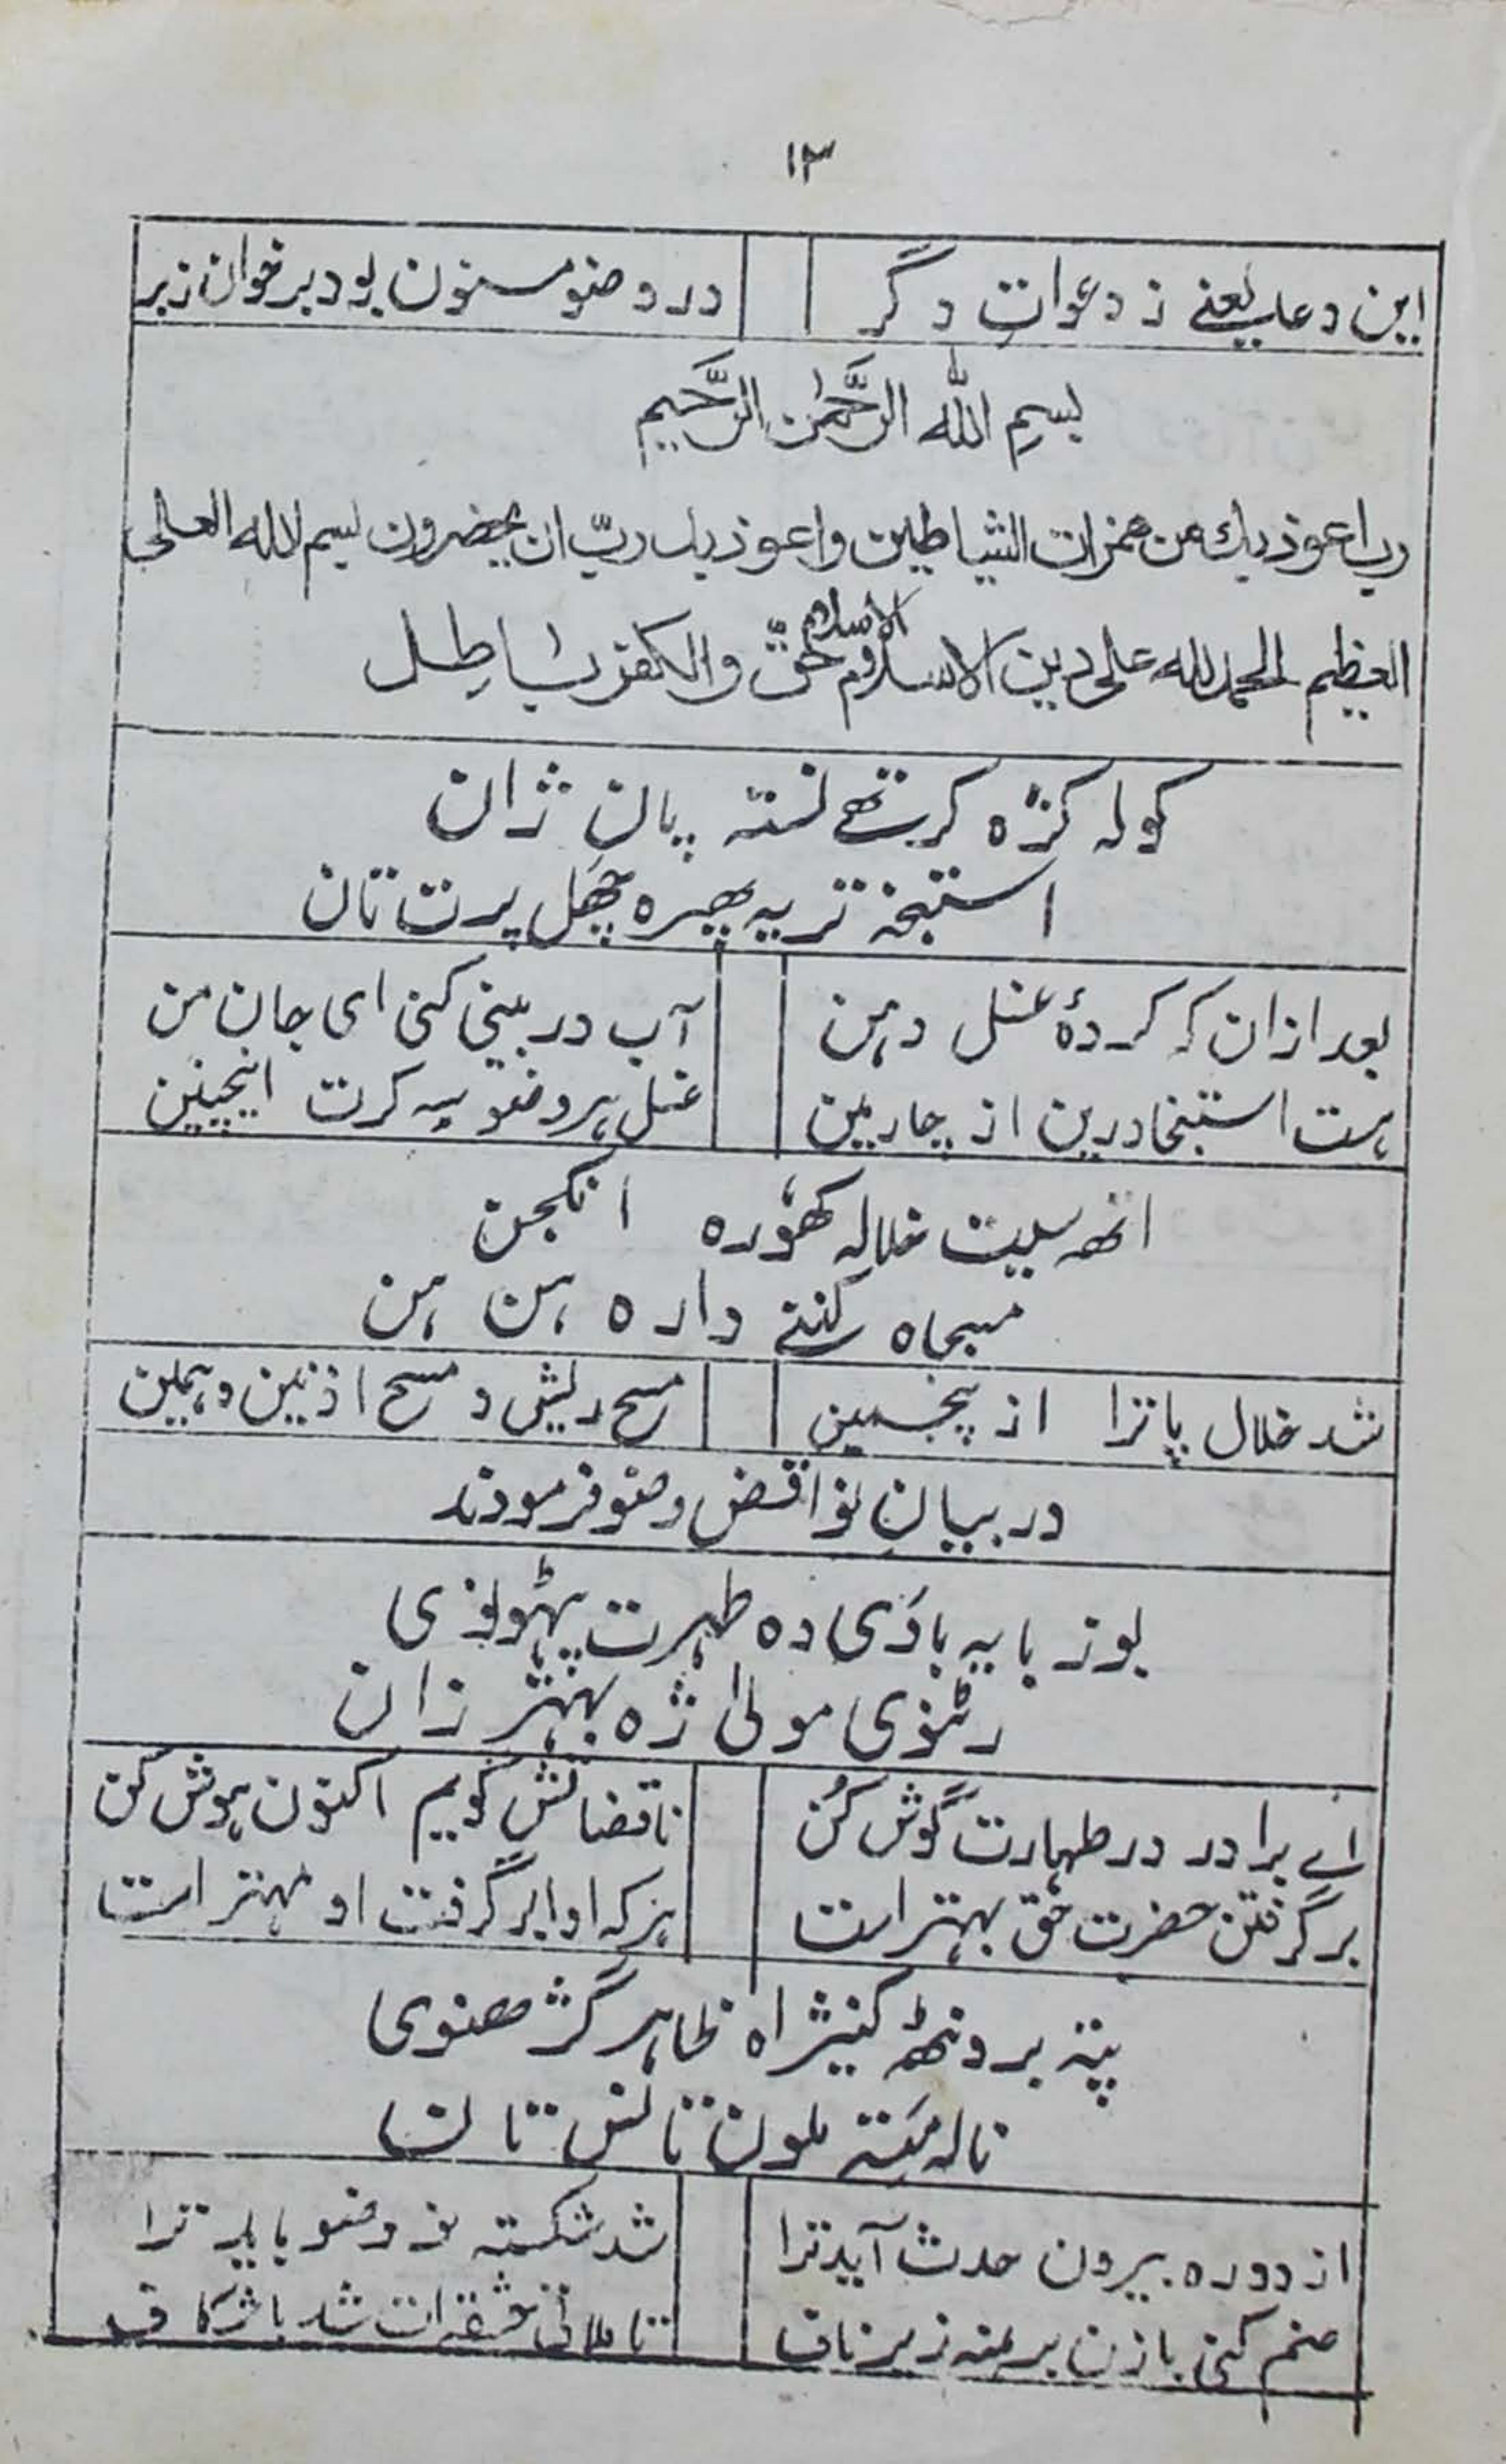 ۱۳
این دعا یعنے ز دعوات دگر در وضو مسنون بود برخوان زبر
بسم اللہ الرَّحمٰن الرَّحیم
رب اعوذ بك من همزات الشیاطین واعوذ بك ربّ ان یحضرون بسم الله العالی
العظیم الحمد لله علی دین الاسلام الاسلام حقّ والکفر باطل
کولہ کژہ کرتھے نستہ پان ژان
استنجہ تریہ پھیرہ چھَل پرت تان
بعد ازان کہ کردۂ غسل دہن آب در بینی کنی ای جان من
ہست استنجا درین از چارمین غسل ہر وضو سہ کرت اینچنین
اتھہ سیت خلالہ کھۆرہ انگجن
مسجاہ کنتے دارہ ہن ہن
شد خلال پا ترا از پنجمین مسح ریش و مسح اذنین و ہمین
در بیان نواقض وضو فرمودند
بوز بایہ باَدَی دہ طہرت پہٹوٚنوی
رٹنوی مولیٰ ژہ بہتر زان
اے برادر در طہارت گوش کُن ناقضاتش گویم اکنون ہوش کن
برگرفتن حضرت حق بہتر است ہر کہ او را برگرفت او مہتر است
پتہ برونٹھہ کنیژاہ ظاہر گژھنوی
نالہ مَتہ ملون تانس تان
از دورہ بیرون حدث آید ترا شد شکستہ نو وضو باید ترا
ضم کنی با زن برہنہ زیر ناف تا ملاقی شد با شکاف